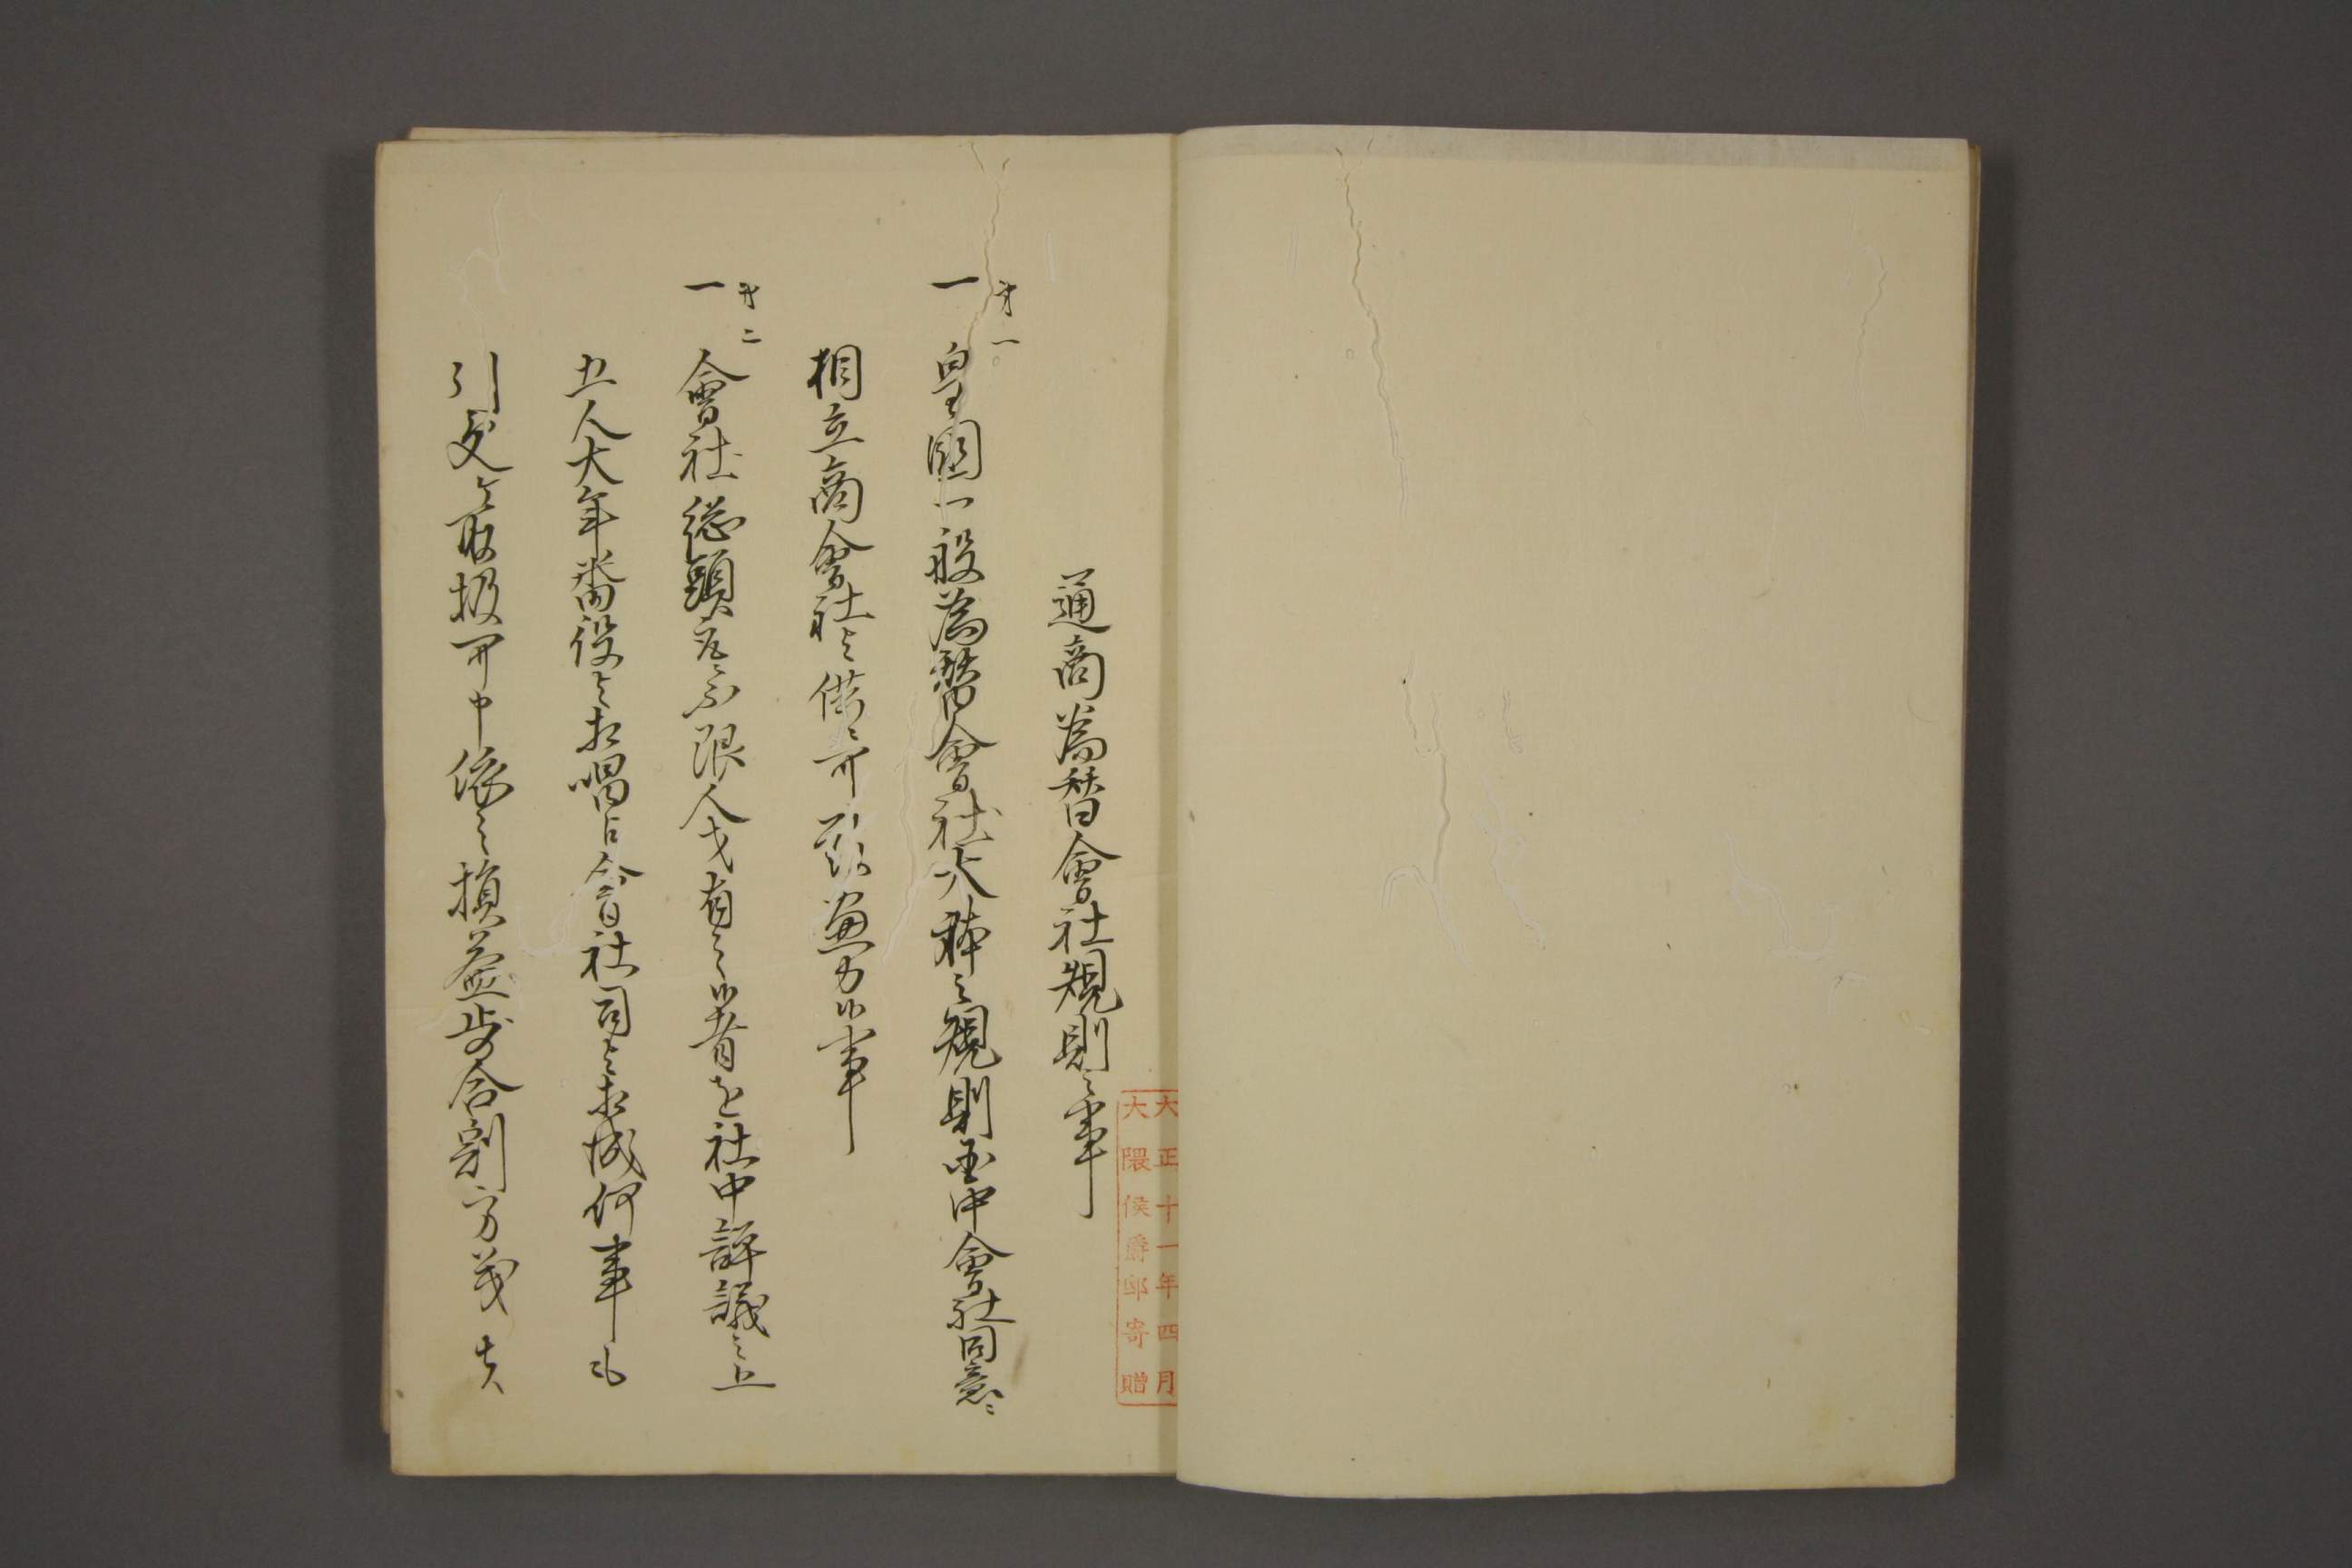 大正十一年四月
大隈侯爵邸寄贈
通商為替會社規則之事
第一
一 皇國一般為替會社大体之規則金中會社同意ニ
相立商會社之備ニ可致盡力候事
第二
一 會社総頭取ニ不限人才有之候者を社中評議之上
五人大年番役与相唱ヘ會社司与相成何事も
引受ケ取扱可申依之損益歩合割方等